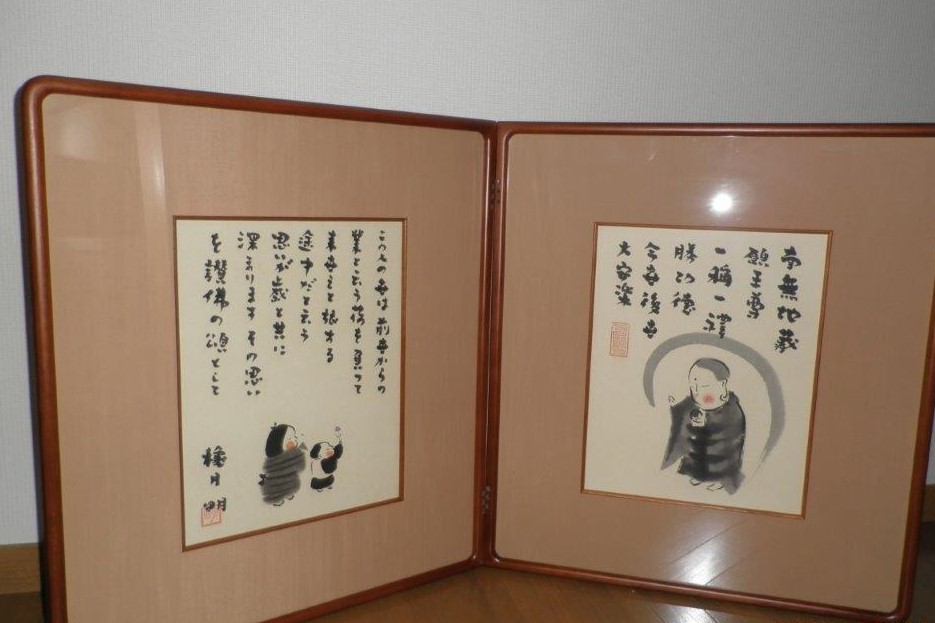 南無地蔵
願王尊
一稱一禮
勝功徳
今世後世
大安楽
この世は前世からの
業と云う荷を負って
来世えと旅する
途中だと云う
思いが歳と共に
深まります その思い
を讃佛の頌として
月 明